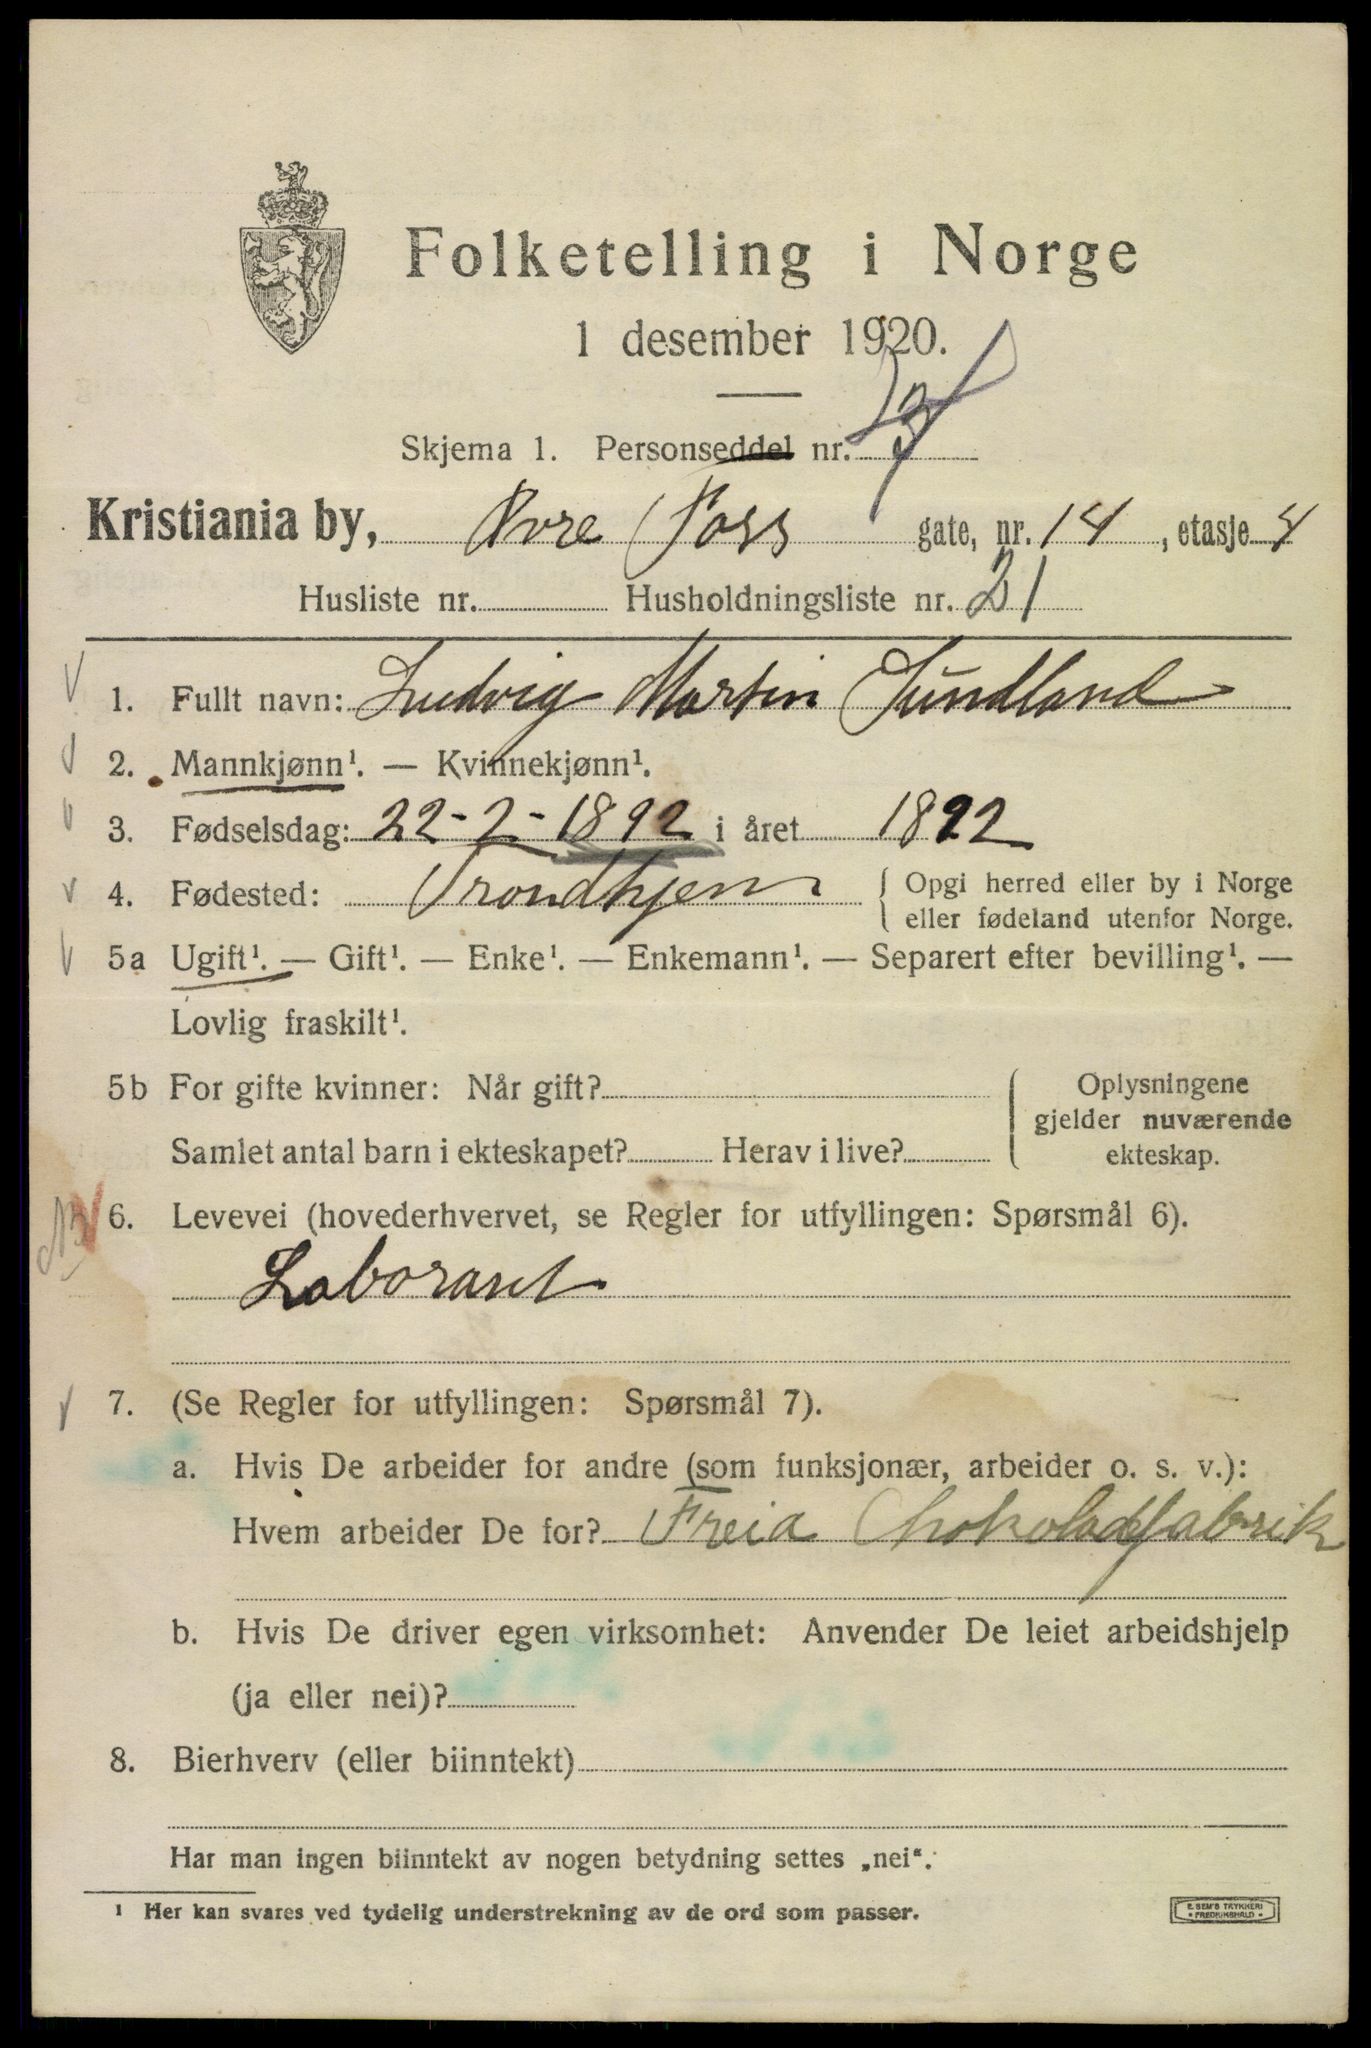 Folketelling i Norge
1 desember 1920.
Skjema 1. Personseddel nr.
Kristiania by, Øvre Foss gate, nr. 14, etasje 4
Husliste nr. Husholdningsliste nr. 21
1. Fullt navn: Ludvig Martin Sundland
2. Mannkjønn¹. — Kvinnekjønn¹.
3. Fødselsdag: 22-2-1892 i året 1892
4. Fødested: Trondhjem { Opgi herred eller by i Norge
eller fødeland utenfor Norge.
5a Ugift¹. — Gift¹. — Enke¹. — Enkemann¹. — Separert efter bevilling¹. —
Lovlig fraskilt¹.
5b For gifte kvinner: Når gift? Oplysningene
gjelder nuværende
Samlet antal barn i ekteskapet? Herav i live? ekteskap.
6. Levevei (hovederhvervet, se Regler for utfyllingen: Spørsmål 6).
Laborant
7. (Se Regler for utfyllingen: Spørsmål 7).
a. Hvis De arbeider for andre (som funksjonær, arbeider o. s. v.):
Hvem arbeider De for? Freia Chokoladefabrik
b. Hvis De driver egen virksomhet: Anvender De leiet arbeidshjelp
(ja eller nei)?
8. Bierhverv (eller biinntekt)
Har man ingen biinntekt av nogen betydning settes „nei“.
¹ Her kan svares ved tydelig understrekning av de ord som passer.
E. SEM'S TRYKKERI
• FREDRIKSHALD •